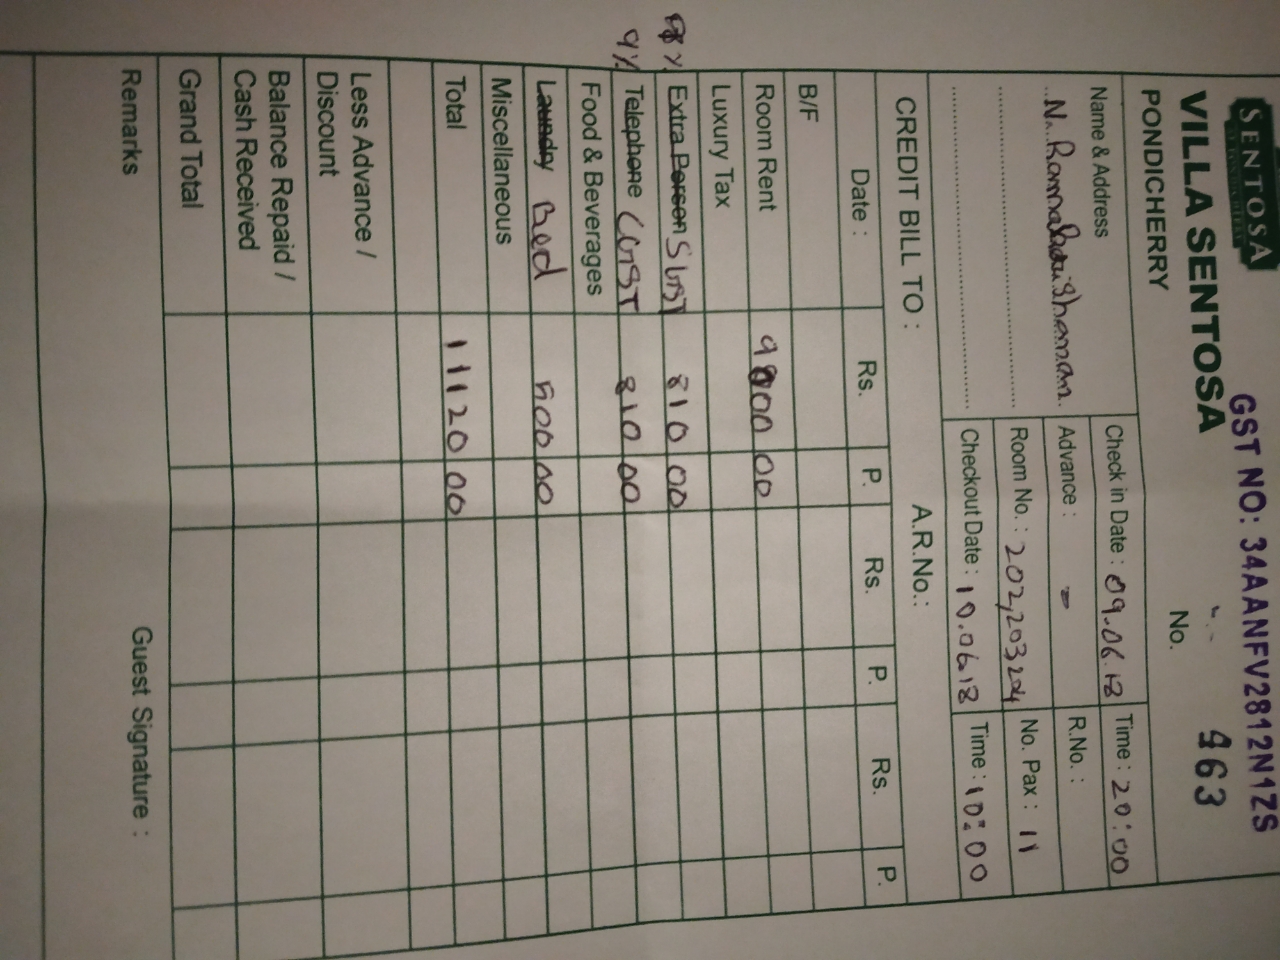 SENTOSA
GST NO: 34AANFV2812N1ZS
VILLA SENTOSA
PONDICHERRY
No. 463
Name & Address
Check in Date : 09.06.18 Time : 20:00
Advance : - R.No. :
Room No. : 202,203,204 No. Pax : 11
Checkout Date : 10.06.18 Time : 10:00
CREDIT BILL TO : A.R.No.:
Date : Rs. P. Rs. P. Rs. P.
B/F
Room Rent 9000 00
Luxury Tax
9% Extra Person SGST 810 00
9% Telephone CGST 810 00
Food & Beverages
Laundry Bed 500 00
Miscellaneous
Total 11120 00
Less Advance /
Discount
Balance Repaid /
Cash Received
Grand Total
Remarks
Guest Signature :